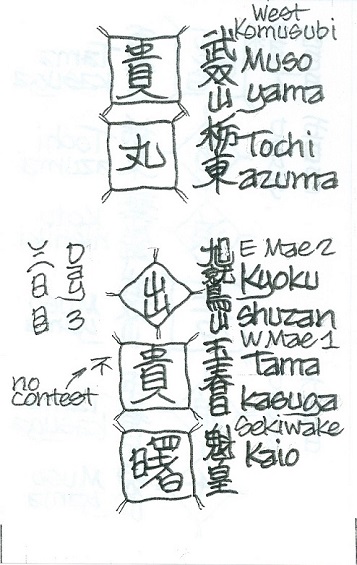 West
Komusubi
貴
武双山
Muso
yama
丸
栃東
Tochi
azuma
三日目
Day 3
出
旭鷲山
E Mae 2
Kyoku
shuzan
no
contest
不
貴
玉春日
W Mae 1
Tama
kasuga
曙
魁皇
Sekiwake
Kaio